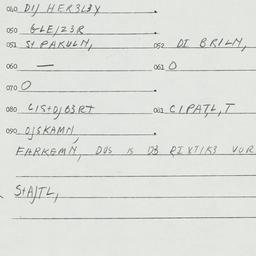 040 DIJ HER3LEY
050 GLEIZ3R
051 St PARULN, 052 DI BRILN,
060 — 061 O
070 O
080 LIStOJO3RT 081 CIPATJL, T
090 OJSKAMN,
FARKEMN, DUS IS D3 RIXTIK3 VUR
StAJTL,